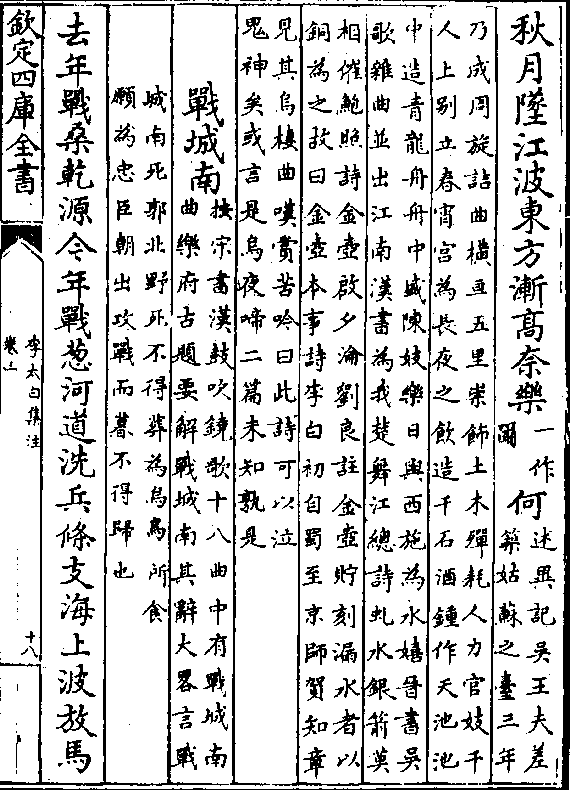 秋月墜江波東方漸髙奈樂一作爾何述異記吳王夫差
築姑蘇之臺三年
乃成周旋詰曲橫亘五里崇飾土木殫耗人力官妓千
人上别立春宵宫為長夜之飲造千石酒鍾作天池池
中造青龍舟舟中盛陳妓樂日與西施為水嬉晉書吳
歌雜曲並出江南漢書為我楚舞江總詩虬水銀箭莫
相催鮑照詩金壺啟夕淪劉良註金壺貯刻漏水者以
銅為之故曰金壺本事詩李白初自蜀至京師賀知章
見其烏棲曲嘆賞苦吟曰此詩可以泣
鬼神矣或言是烏夜啼二篇未知孰是
戰城南按宋書漢鼓吹鐃歌十八曲中有戰城南
曲樂府古題要解戰城南其辭大畧言戰
城南死郭北野死不得葬為烏鳥所食
願為忠臣朝出攻戰而暮不得歸也
去年戰桑乾源今年戰葱河道洗兵條支海上波放馬
欽定四庫全書
李太白集注
卷三
十八